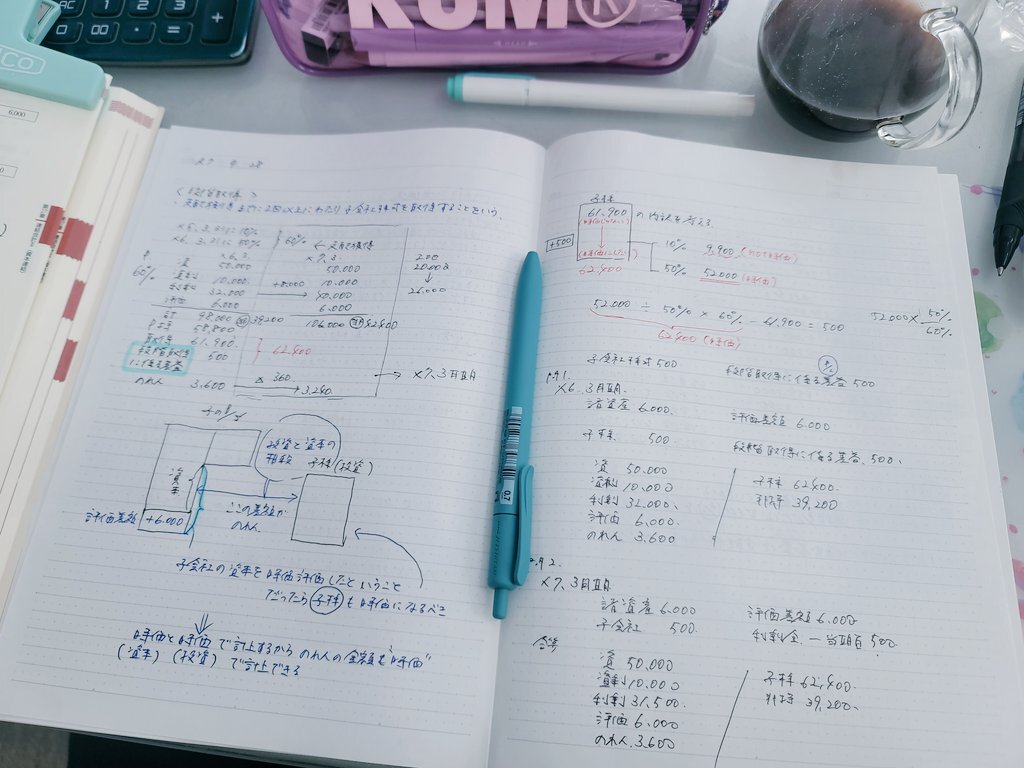 KUM®
6.000
0.7
<段階取得>
支配獲得までに2回以上にわたり子会社株式を取得することをいう。
×6.3.31に10%
×6.3.31に50%
60%
←支配獲得
×6.3.
×7.3.
60%
資 50.000 50.000
資剰 10.000 10.000
利剰 32.000 +8.000 40.000
評価 6.000 6.000
計 98.000 39200 106.000 42400
P持 58,800
取得 61.900
段階取得に係る差益 500
62.400
のれん 3,600 △360 3,240
→ ×7.3月期
200
20.000
↓
26.000
子のB/S
資本
投資と資本の相殺
子株(投資)
ここの差額がのれん
評価差額 +6.000
子会社の資本を時価評価したということ
だったら子株も時価になるべき
⇓
時価と時価で計上するからのれんの金額も"時価"
(資本)(投資)で計上できる
子株
61,900
+500
62.400
の内訳を考える
10% 9,900
50% 52000 (時価)
52.000 ÷ 50% × 60% - 61,900 = 500
62400 (時価)
52000 × 50%/60%
子会社株式 500 段階取得に係る差益 500
×6.3月期
諸資産 6.000 評価差額 6.000
子株 500 段階取得に係る差益 500
資 50.000 子株 62400
資剰 10,000 非持 39,200
利剰 32,000
評価 6,000
のれん 3,600
×7.3月期
諸資産 6.000 評価差額 6.000
子会社 500 利剰金-当期首 500
資 50.000 子株 62,400
資剰 10,000 非持 39,200
利剰 31,500
評価 6,000
のれん 3.600